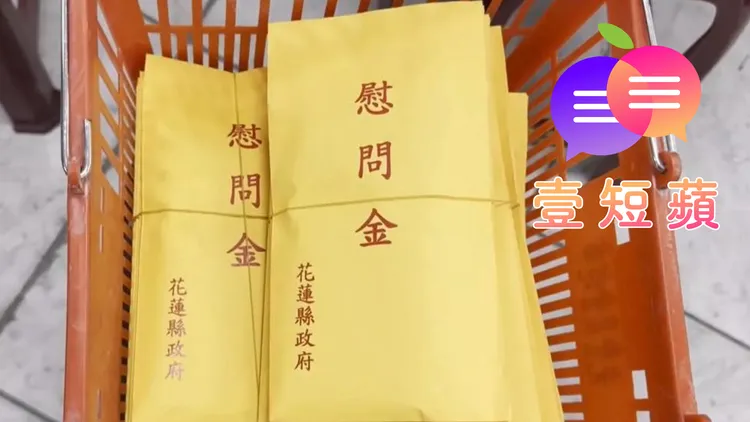 慰問金
花蓮縣政府
慰問金
花蓮縣政府
壹短蘋